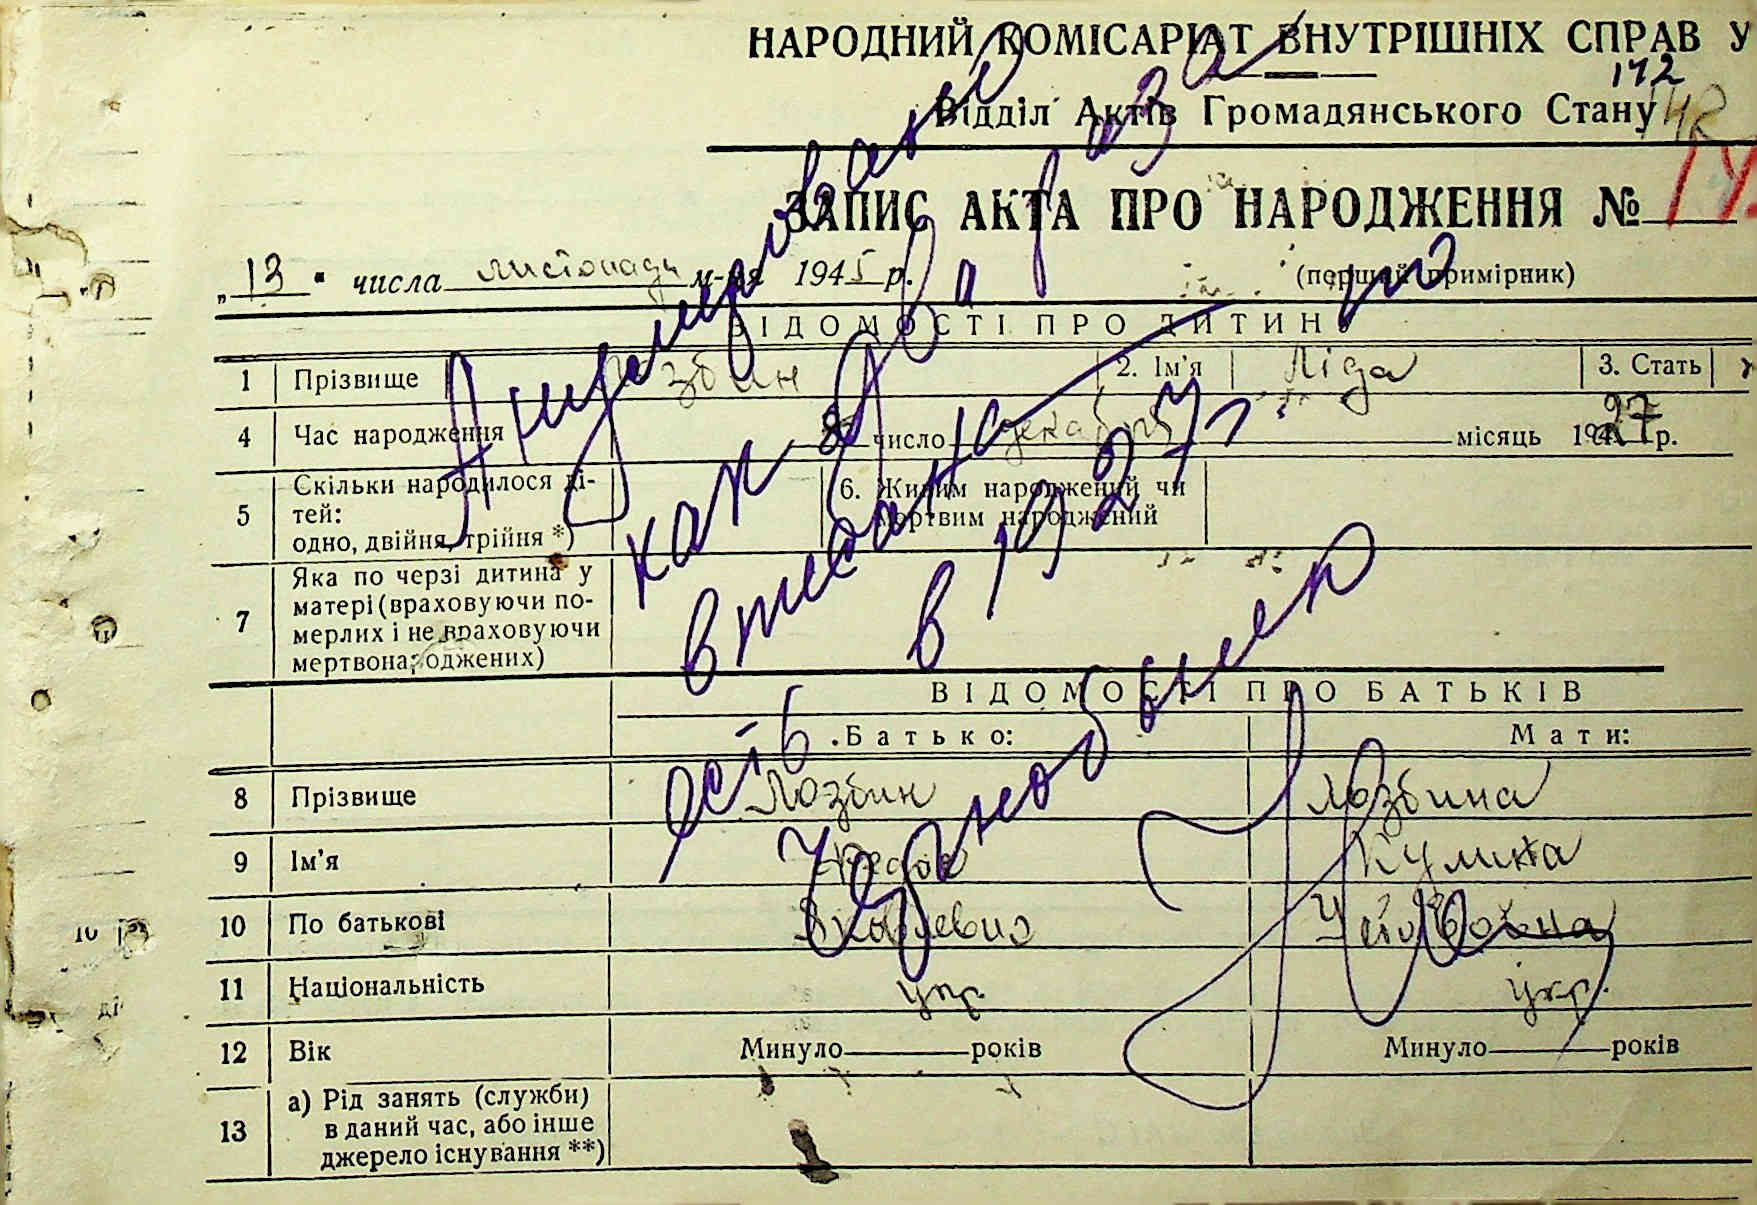 НАРОДНИЙ КОМІСАРІАТ ВНУТРІШНІХ СПРАВ У
172
Відділ Актів Громадянського Стану
ЗАПИС АКТА ПРО НАРОДЖЕННЯ №
„13“ числа листопада м-ця 1945 р. (перший примірник)
ВІДОМОСТІ ПРО ДИТИНУ
1 Прізвище 2. Ім'я Ліда 3. Стать
4 Час народження 8 число декабря місяць 1927 р.
5 Скільки народилося ді-
тей:
одно, двійня, трійня *)
6. Живим народжений чи
мертвим народжений
7 Яка по черзі дитина у
матері (враховуючи по-
мерлих і не враховуючи
мертвонароджених)
ВІДОМОСТІ ПРО БАТЬКІВ
Батько: Мати:
8 Прізвище Лозбин Лозбина
9 Ім'я Кулина
10 По батькові Яковлевич
11 Національність укр. укр.
12 Вік Минуло років Минуло років
13 а) Рід занять (служби)
в даний час, або інше
джерело існування **)
Анулировано
как 2 раза
вписано
в 1927 г.
есть